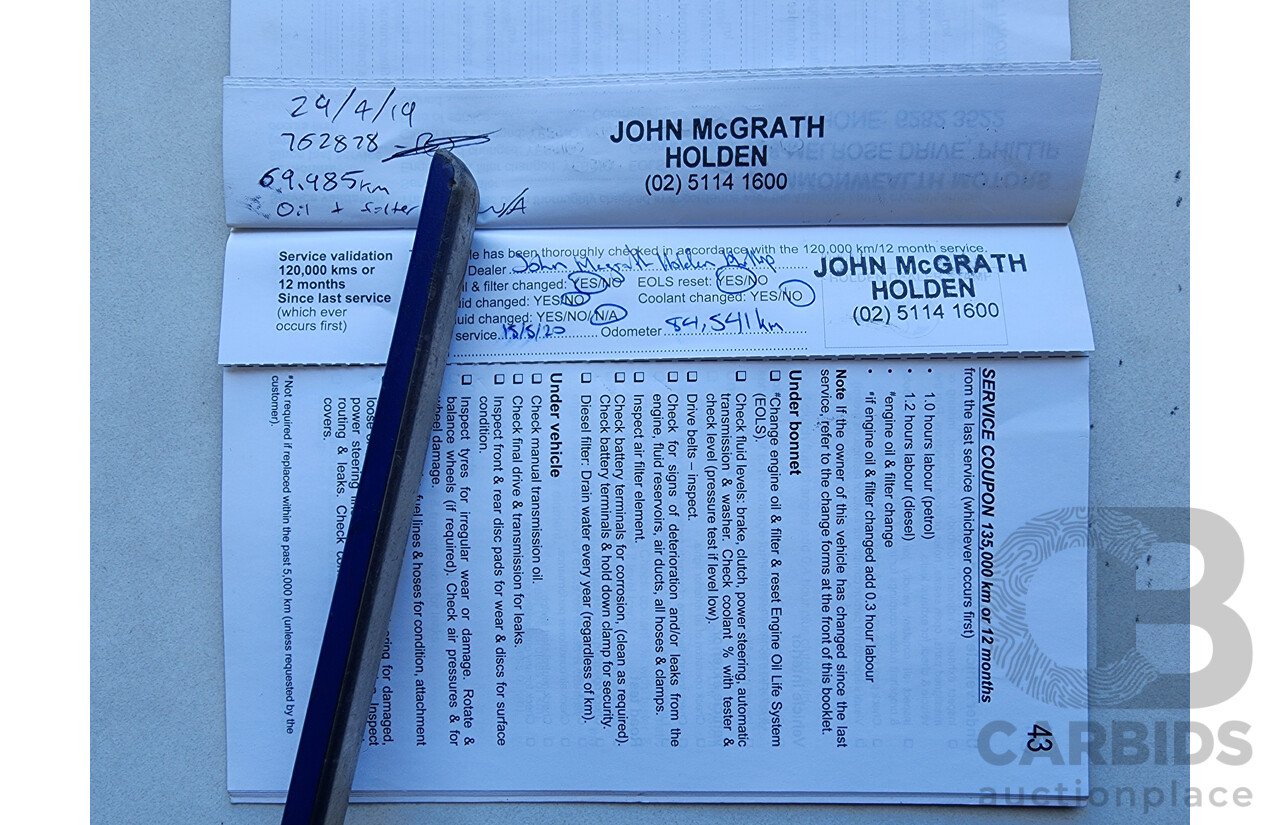 29/4/19
762878
69,985km
Oil + filter N/A
JOHN McGRATH
HOLDEN
(02) 5114 1600
Service validation
120,000 kms or
12 months
Since last service
(which ever
occurs first)
le has been thoroughly checked in accordance with the 120,000 km/12 month service.
Dealer John McGrath Holden Phillip
il & filter changed: YES/NO EOLS reset: YES/NO
uid changed: YES/NO Coolant changed: YES/NO
uid changed: YES/NO/N/A
service 15/5/20 Odometer 84,541km
JOHN McGRATH
HOLDEN
(02) 5114 1600
SERVICE COUPON 135,000 km or 12 months
from the last service (whichever occurs first)
• 1.0 hours labour (petrol)
• 1.2 hours labour (diesel)
*engine oil & filter change
• *if engine oil & filter changed add 0.3 hour labour
Note If the owner of this vehicle has changed since the last
service, refer to the change forms at the front of this booklet.
Under bonnet
❑ *Change engine oil & filter & reset Engine Oil Life System
(EOLS).
❑ Check fluid levels: brake, clutch, power steering, automatic
transmission & washer. Check coolant % with tester &
check level (pressure test if level low).
❑ Drive belts – inspect.
❑ Check for signs of deterioration and/or leaks from the
engine, fluid reservoirs, air ducts, all hoses & clamps.
❑ Inspect air filter element.
❑ Check battery terminals for corrosion, (clean as required).
Check battery terminals & hold down clamp for security.
❑ Diesel filter: Drain water every year (regardless of km).
Under vehicle
❑ Check manual transmission oil.
❑ Check final drive & transmission for leaks.
❑ Inspect front & rear disc pads for wear & discs for surface
condition.
❑ Inspect tyres for irregular wear or damage. Rotate &
balance wheels (if required). Check air pressures & for
wheel damage.
fuel lines & hoses for condition, attachment
ring for damaged,
loose
Inspect
power steering
routing & leaks. Check
covers.
*Not required if replaced within the past 5,000 km (unless requested by the
customer).
43
CB
CARBIDS
auctionplace